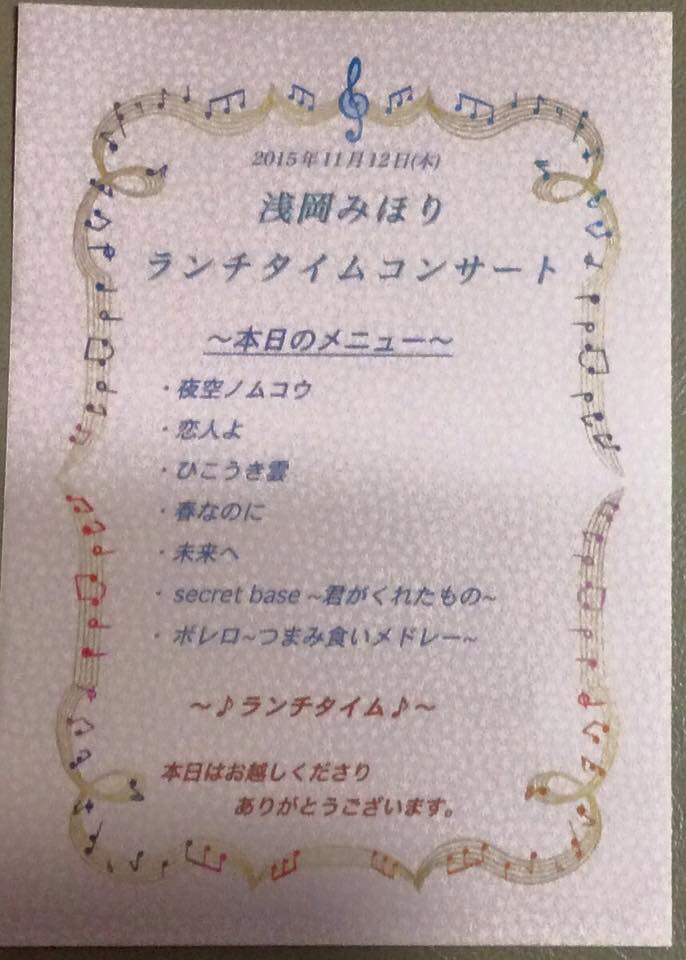 2015年11月12日(木)
浅岡みほり
ランチタイムコンサート
～本日のメニュー～
・夜空ノムコウ
・恋人よ
・ひこうき雲
・春なのに
・未来へ
・secret base ~君がくれたもの~
・ボレロ~つまみ食いメドレー~
～♪ランチタイム♪～
本日はお越しくださり
ありがとうございます。